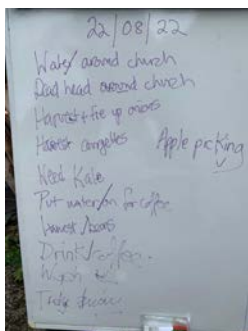 22/08/22
Water around church
Dead head around church
Harvest + tie up onions
Harvest courgettes
Apple picking
Weed Kale
Put water on for coffee
Harvest beans
Drink coffee.
Wash